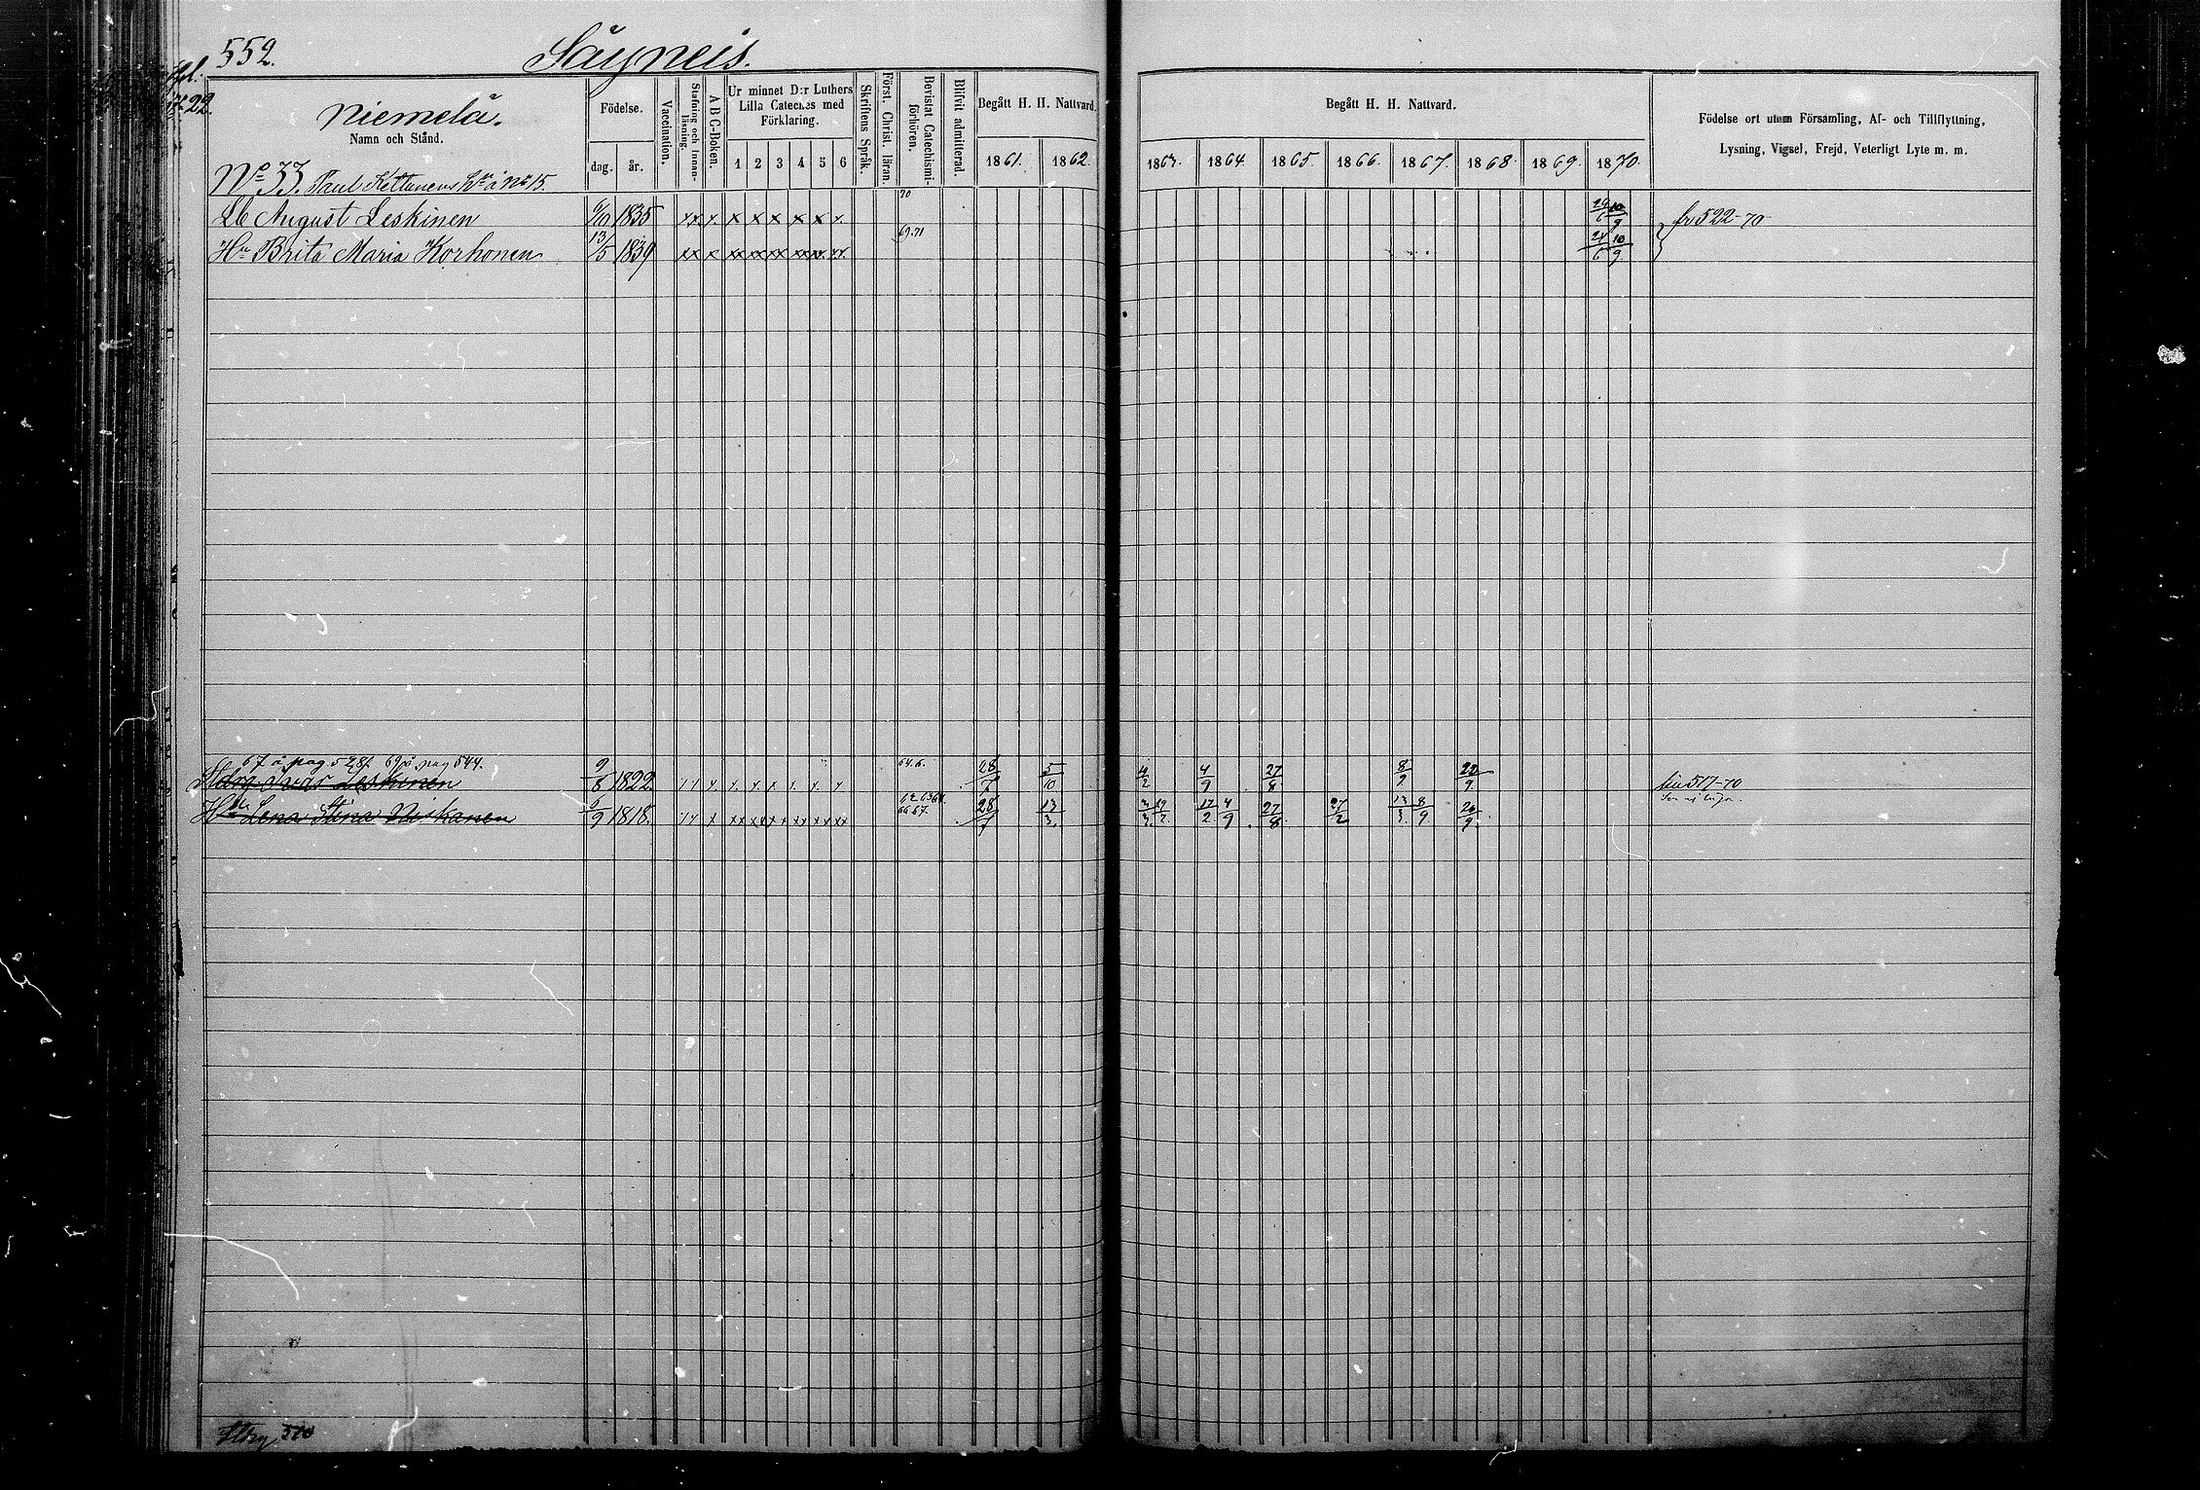 552. Säyneis.
22.
Niemelä.
Namn och Stånd.
Födelse.
dag. år.
Vaccination.
Stafning och Innanläsning.
A B C-Boken.
Ur minnet D:r Luthers
Lilla Cateches med
Förklaring.
1 2 3 4 5 6
Skriftens Språk.
Först. Christ. läran.
Bevistat Catechismi-
förhören.
Blifvit admitterad.
Begått H. H. Nattvard.
1861. 1862.
Begått H. H. Nattvard.
1863. 1864. 1865. 1866. 1867. 1868. 1869. 1870.
Födelse ort utom Församling, Af- och Tillflyttning,
Lysning, Vigsel, Frejd, Veterligt Lyte m. m.
No 33. Paul Kettunens á No 15.
70
Lb August Leskinen 6/10 1835 x x x x x x x x x fr 522-70
69.71
Hu Brita Maria Korhonen 13/5 1839 xx x xx xx xx xx xx xx 24/6 10/9
67 á pag 528. 69 á pag 544.
Ivar Leskinen 9/8 1822. 28/7 5/10 4/9 27/8 8/9 517-70
Hu Lena Stina Niskanen 6/9 1818. 28/7 13/3. 17/2 4/9 27/8 27/2 13/3. 8/9.